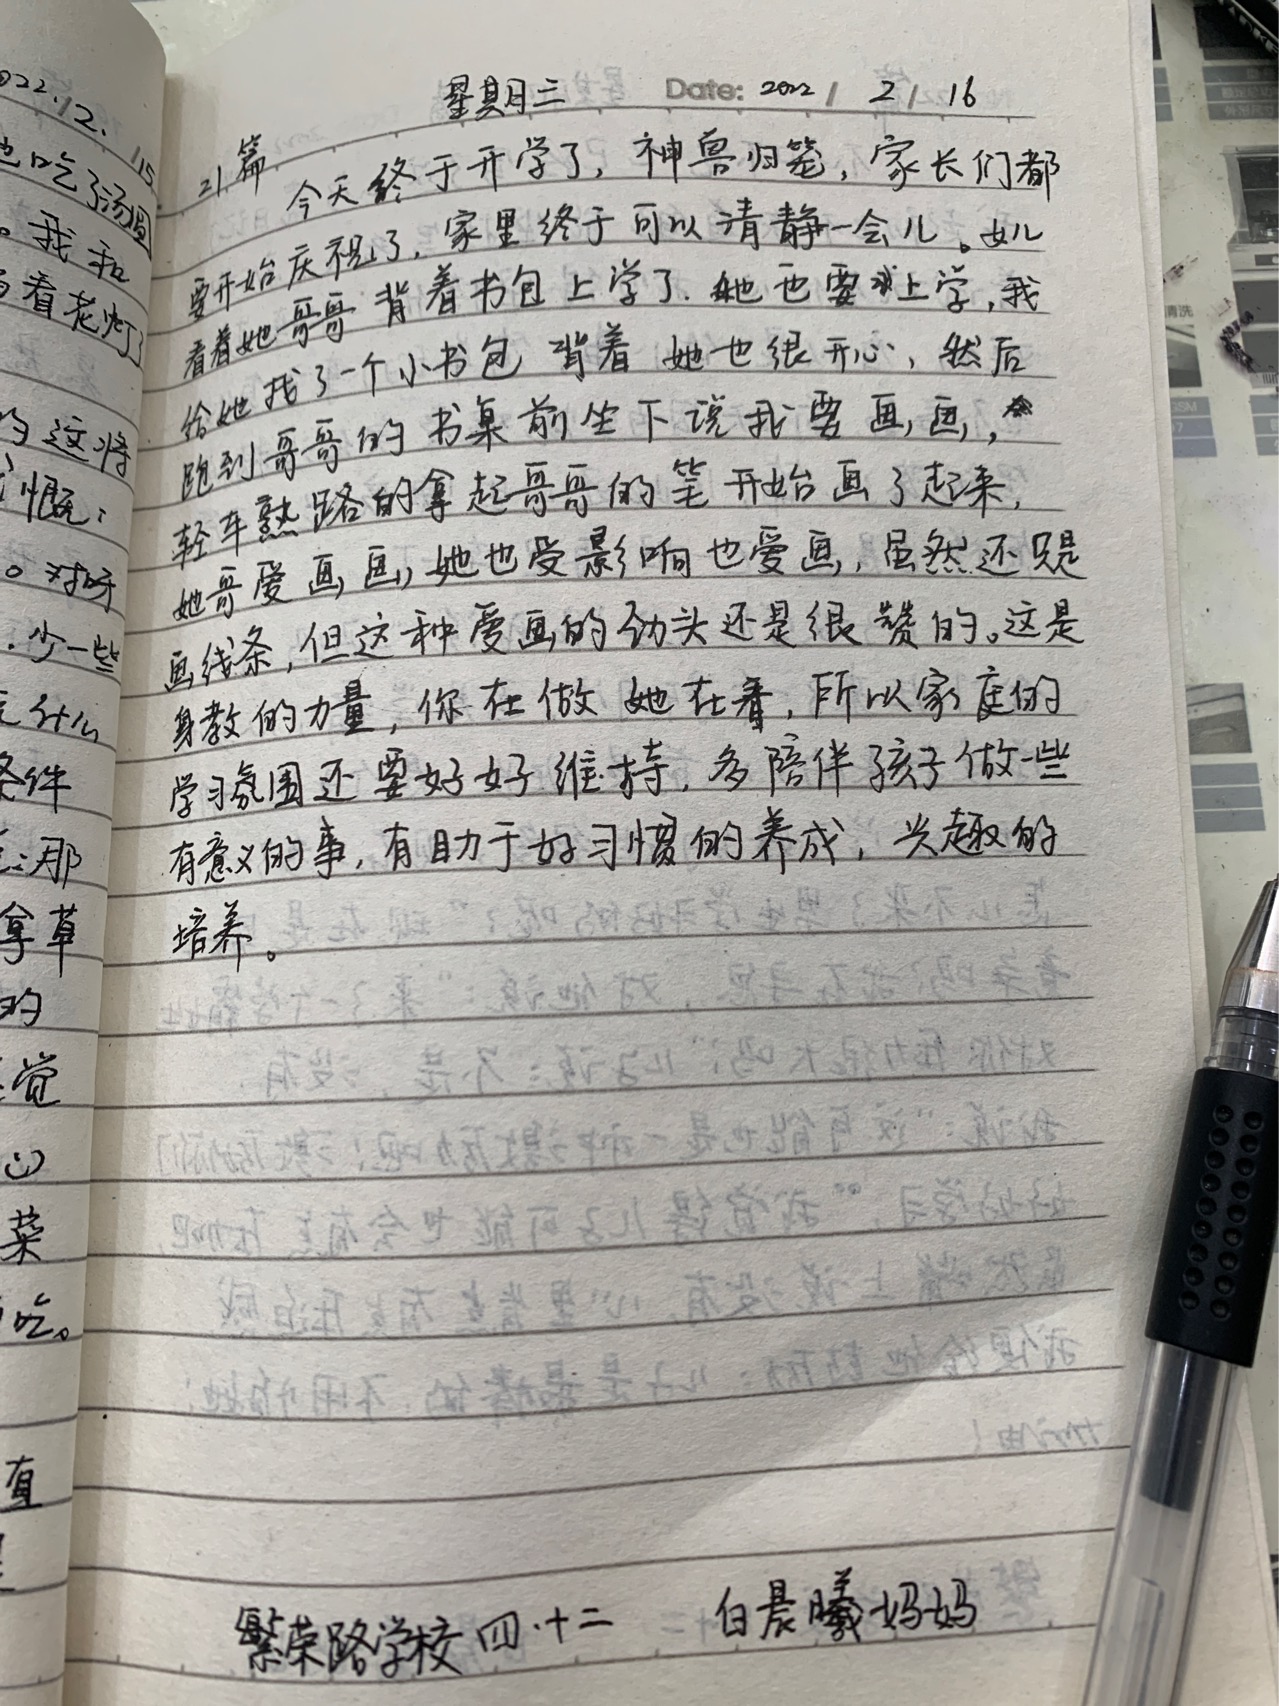 星期三 Date: 2022 / 2 / 16
21篇
今天终于开学了，神兽归笼，家长们都
要开始庆祝了，家里终于可以清静一会儿。女儿
看着她哥哥背着书包上学了．她也要上学，我
给她找了一个小书包 背着 她也很开心，然后
跑到哥哥的书桌前坐下说我要画画，
轻车熟路的拿起哥哥的笔开始画了起来，
她哥爱画画，她也受影响也爱画，虽然还只是
画线条，但这种爱画的劲头还是很赞的。这是
身教的力量，你在做 她在看，所以家庭的
学习氛围还要好好维持，多陪伴孩子做一些
有意义的事，有助于好习惯的养成，兴趣的
培养。
繁荣路学校四·十二 白晨曦妈妈
2022.2.15
也吃了汤圆
。我和
看老灯
的这将
慨：
。对呀
．少一些
什么
条件
：那
拿草
的
觉
心
菜
吃。
直
清洗